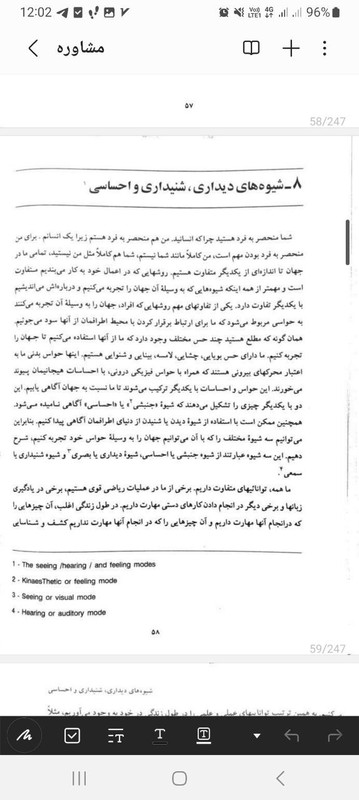 12:02
Vo)) 4G LTE1 96%
مشاوره
۵۷
58/247
۸ــ شیوه‌های دیداری، شنیداری و احساسی ۱
شما منحصر به فرد هستید چرا که انسانید. من هم منحصر به فرد هستم زیرا یک انسانم. برای من
منحصر به فرد بودن مهم است، من کاملاً مانند شما نیستم، شما هم کاملاً مثل من نیستید، تمامی ما در
جهان تا اندازه‌ای از یکدیگر متفاوت هستیم. روشهایی که در اعمال خود به کار می‌بندیم متفاوت
است و مهمتر از همه اینکه شیوه‌هایی که به وسیلهٔ آن جهان را تجربه می‌کنیم و درباره‌اش می‌اندیشیم
با یکدیگر تفاوت دارد. یکی از تفاوتهای مهم روشهایی که افراد، جهان را به وسیلهٔ آن تجربه می‌کنند
به حواسی مربوط می‌شود که ما برای ارتباط برقرار کردن با محیط اطرافمان از آنها سود می‌جوئیم.
همان گونه که مطلع هستید چند حس مختلف وجود دارد که ما از آنها استفاده می‌کنیم تا جهان را
تجربه کنیم. ما دارای حس بویایی، چشایی، لامسه، بینایی و شنوایی هستیم. اینها حواس بدنی ما به
اعتبار محرکهای بیرونی هستند که همراه با حواس فیزیکی درونی، با احساسات هیجانیمان پیوند
می‌خورند. این حواس و احساسات با یکدیگر ترکیب می‌شوند تا ما نسبت به جهان آگاهی یابیم. این
دو با یکدیگر چیزی را تشکیل می‌دهند که شیوهٔ «جنبشی۲» یا «احساسی» آگاهی نامیده می‌شود.
همچنین ممکن است با استفاده از شیوهٔ دیدن یا شنیدن از دنیای اطرافمان آگاهی پیدا کنیم. بنابراین
می‌توانیم سه شیوهٔ مختلف را که با آن می‌توانیم جهان را به وسیلهٔ حواس خود تجربه کنیم، شرح
دهیم. این سه شیوه عبارتند از شیوه جنبشی یا احساسی، شیوهٔ دیداری یا بصری۳ و شیوه شنیداری یا
سمعی۴.
ما همه، تواناییهای متفاوت داریم. برخی از ما در عملیات ریاضی قوی هستیم، برخی در یادگیری
زبانها و برخی دیگر در انجام دادن کارهای دستی مهارت داریم. در طول زندگی اغلب، آن چیزهایی را
که در انجام آنها مهارت داریم و آن چیزهایی را که در انجام آنها مهارت نداریم کشف و شناسایی
1 - The seeing /hearing / and feeling modes
2 - KinaesThetic or feeling mode
3 - Seeing or visual mode
4 - Hearing or auditory mode
۵۸
59/247
شیوه‌های دیداری، شنیداری و احساسی
می‌کنیم. به همین ترتیب تواناییهای عملی و علمی را در طول زندگی در خود به وجود می‌آوریم، مثلاً